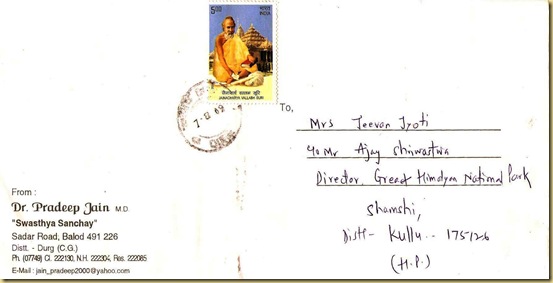 5.00 भारत
INDIA
जैनाचार्य वल्लभ सूरि
JAINACHARYA VALLABH SURI
To,
Mrs Jeevan Jyoti
c/o Mr Ajay Shriwastwa
Director, Great Himalyan National Park
Shamshi,
Distt- Kullu - 175126
(H.P.)
From :
Dr. Pradeep Jain M.D.
"Swasthya Sanchay"
Sadar Road, Balod 491 226
Distt. - Durg (C.G.)
Ph. (07749) Cl. 222130, N.H. 222304, Res. 222085
E-Mail : jain_pradeep2000@yahoo.com